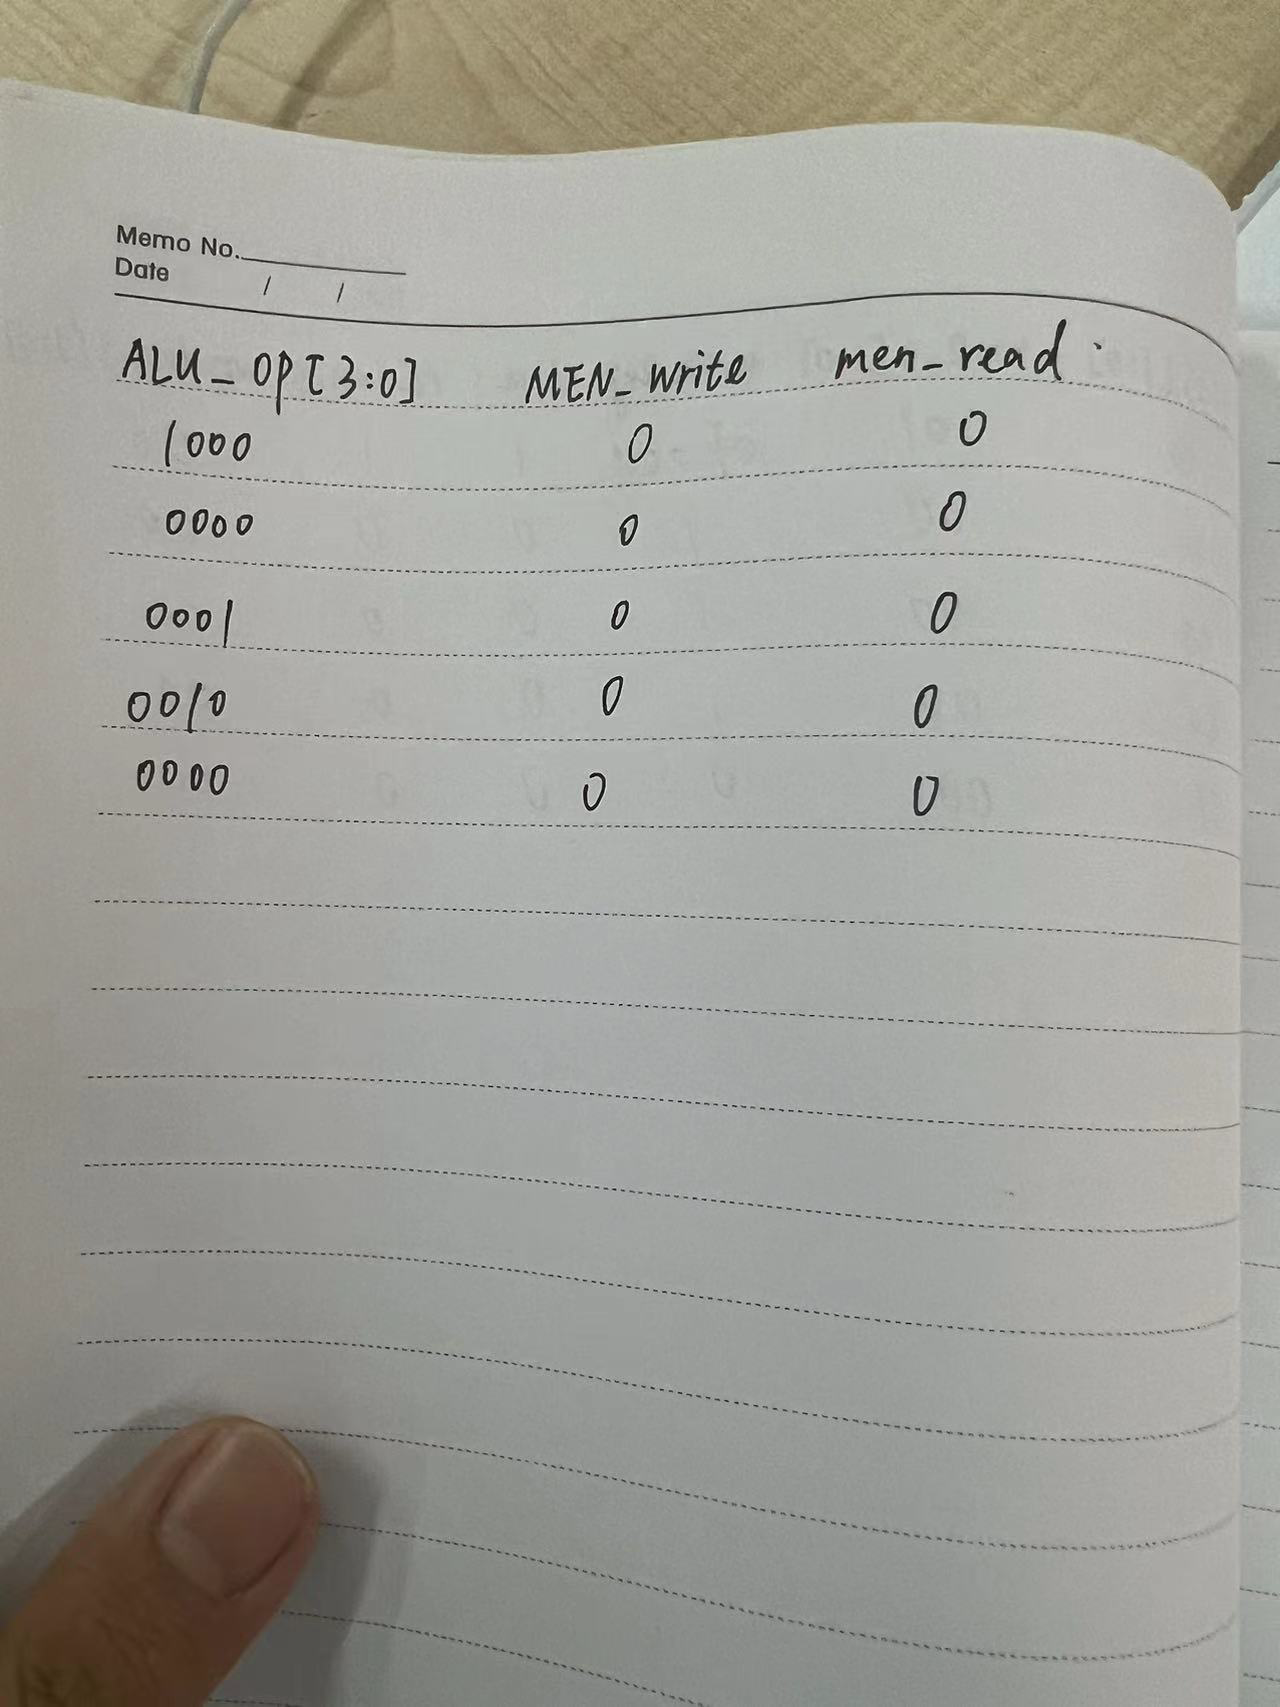 Memo No.
Date / /
ALU_OP[3:0] MEN_write men_read
1000 0 0
0000 0 0
0001 0 0
0010 0 0
0000 0 0